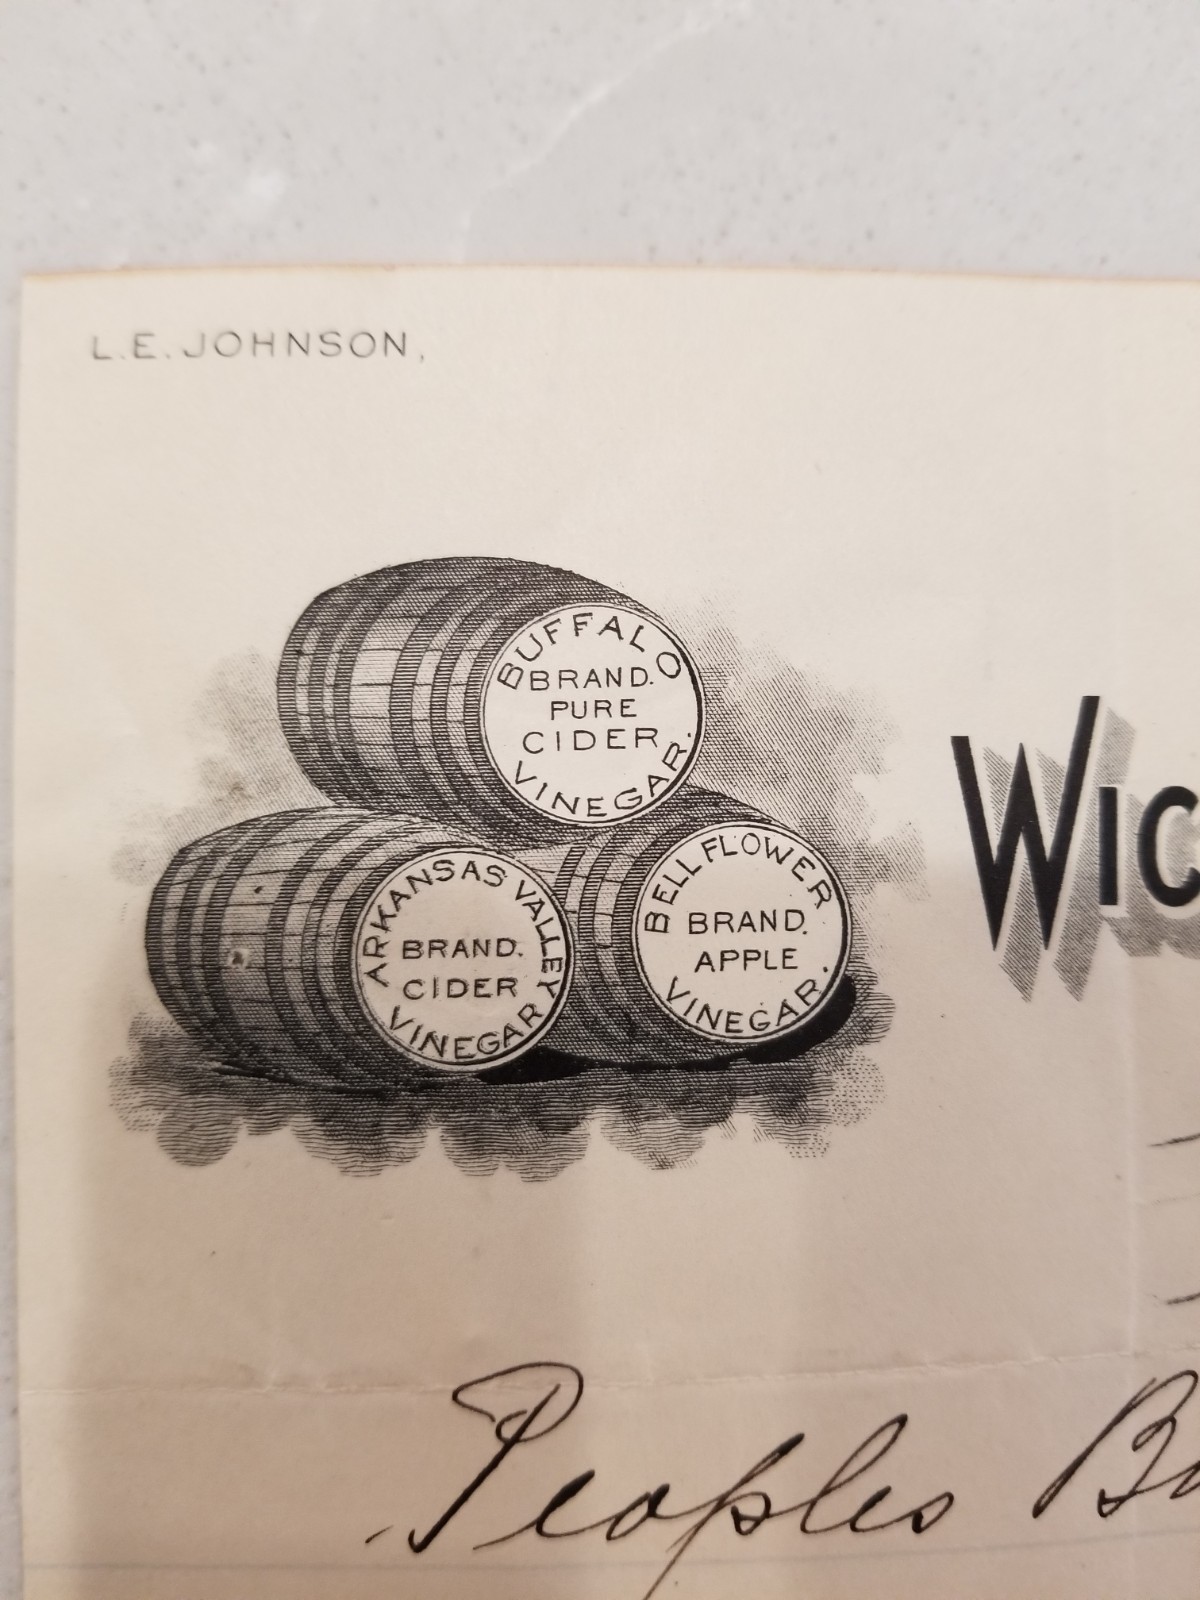 L.E. JOHNSON,
BUFFALO
BRAND.
PURE
CIDER
VINEGAR.
ARKANSAS VALLEY
BRAND.
CIDER
VINEGAR
BELL FLOWER
BRAND.
APPLE
VINEGAR.
WIC
Peoples